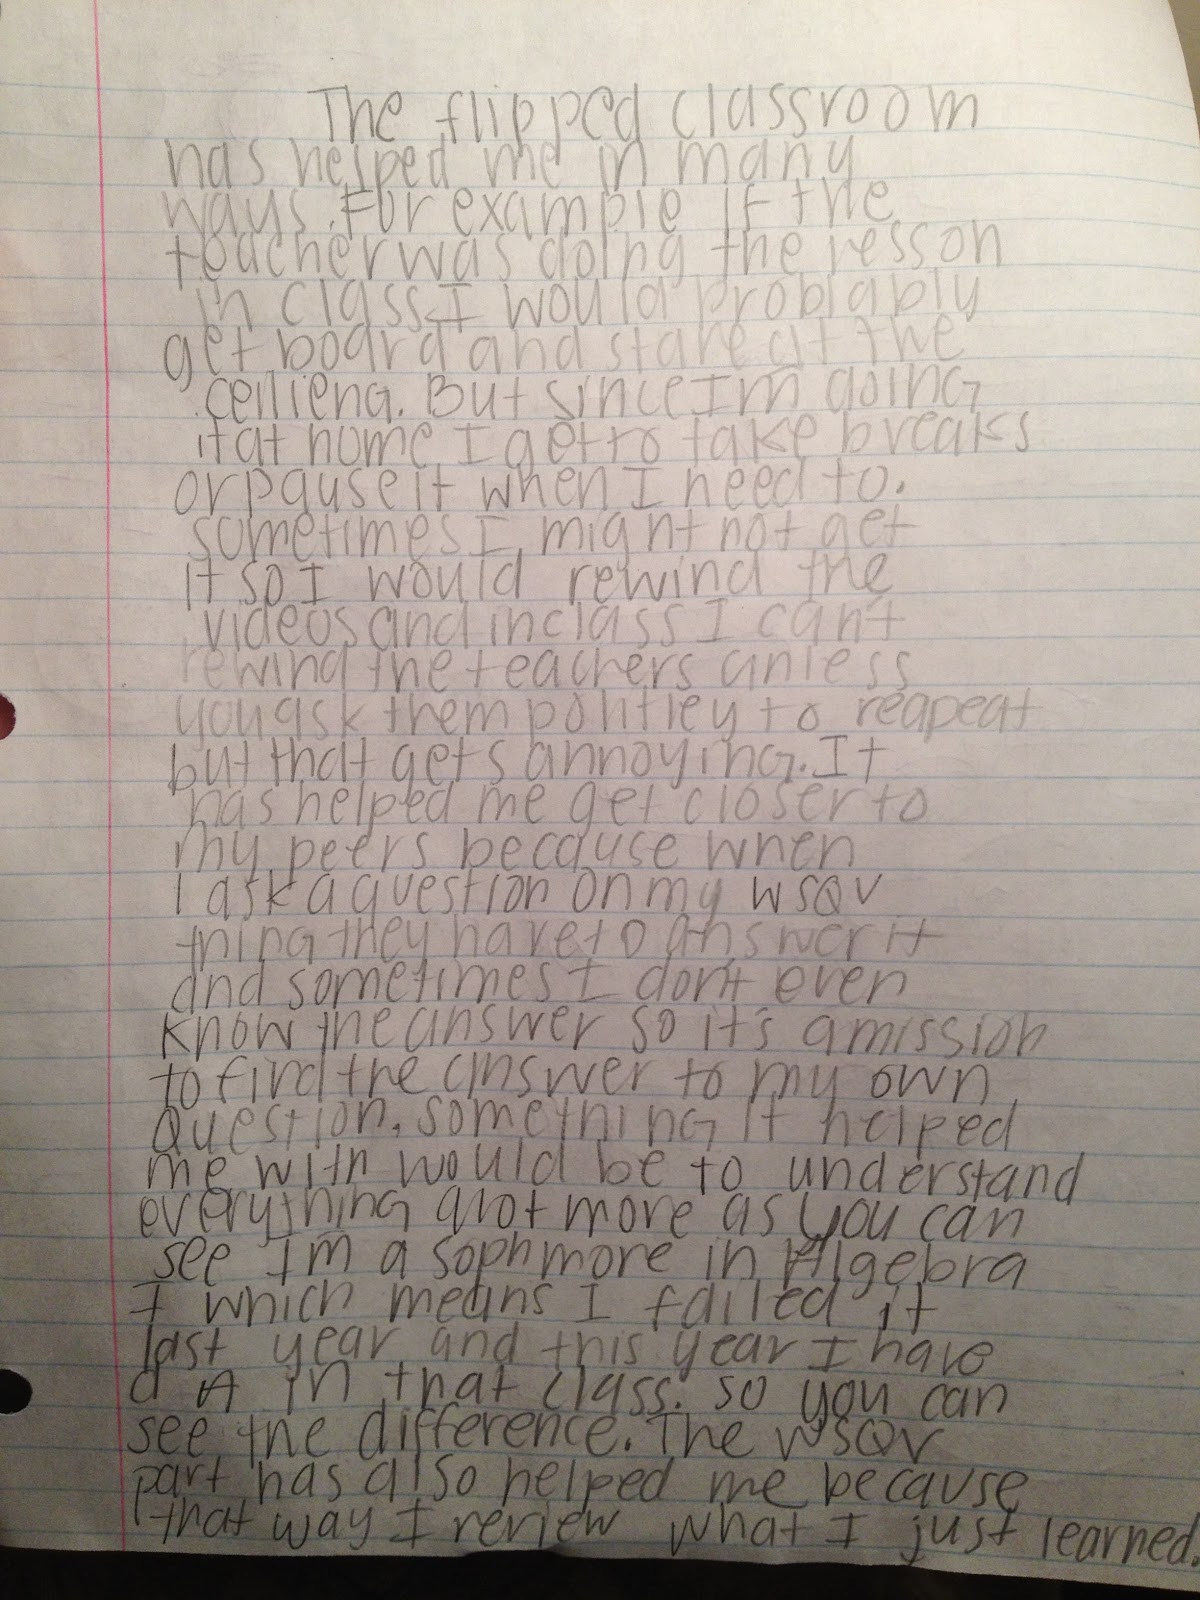 The flipped classroom
has helped me in many
ways. For example if the
teacher was doing the lesson
in class I would problably
get board and stare at the
ceilieng. But since Im doing
it at home I get to take breaks
or pause it when I need to.
sometimes I might not get
it so I would rewind the
videos and in class I can't
rewind the teachers unless
you ask them politley to reapeat
but that gets annoying. It
has helped me get closer to
my peers because when
I ask a question on my WSQV
thing they have to answer it
and sometimes I don't even
know the answer so it's a mission
to find the answer to my own
question. something it helped
me with would be to understand
everything alot more as you can
see Im a sophmore in Algebra
I which means I failed it
last year and this year I have
a A in that class. so you can
see the difference. The WSQV
part has also helped me because
that way I review what I just learned.